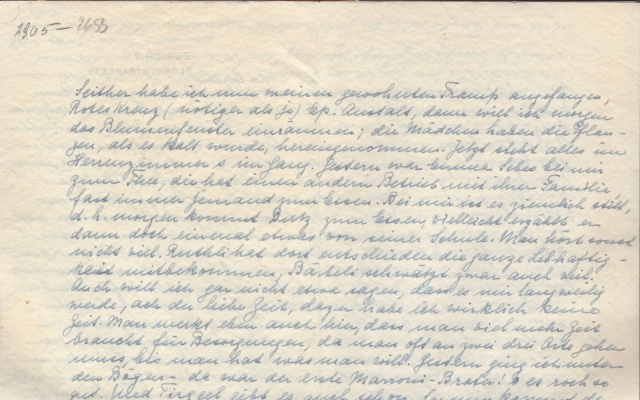 2805 – 2653
ZÜRICH
Seither habe ich nun meinen gewohnten Tramp angefangen,
Rotes Kreuz (nötiger als je) Ep. Anstalt, dann will ich morgen
das Blumenfenster einräumen; die Mädchen haben die Pflan-
zen, als es kalt wurde, hereingenommen. Jetzt steht alles im
Herrenzimmer & im Gang. Gestern war Emma bei mir
zum Thee, die hat einen andern Betrieb mit ihrer Familie
fast immer Jemand zum Essen. Bei mir ist es ziemlich still,
d. h. morgen kommt Butz zum Essen, vielleicht erzählt er
dann doch einmal etwas von seiner Schule. Man hört sonst
nicht viel. Ruthli hat dort entschieden die ganze Lebhaftig-
keit mitbekommen, Bärbeli schwatzt zwar auch viel.
Auch will ich gar nicht etwa sagen, dass es mir langweilig
werde, ach du liebe Zeit, dazu habe ich wirklich keine
Zeit. Man merkt eben auch hier, dass man viel mehr Zeit
braucht für Besorgungen, da man oft an zwei drei Orte gehen
muss, bis man hat was man will. Gestern ging ich unter
den Bögen – da war der erste Marroni-Brater! & es roch so
gut. Und Tirggel gibt es auch schon